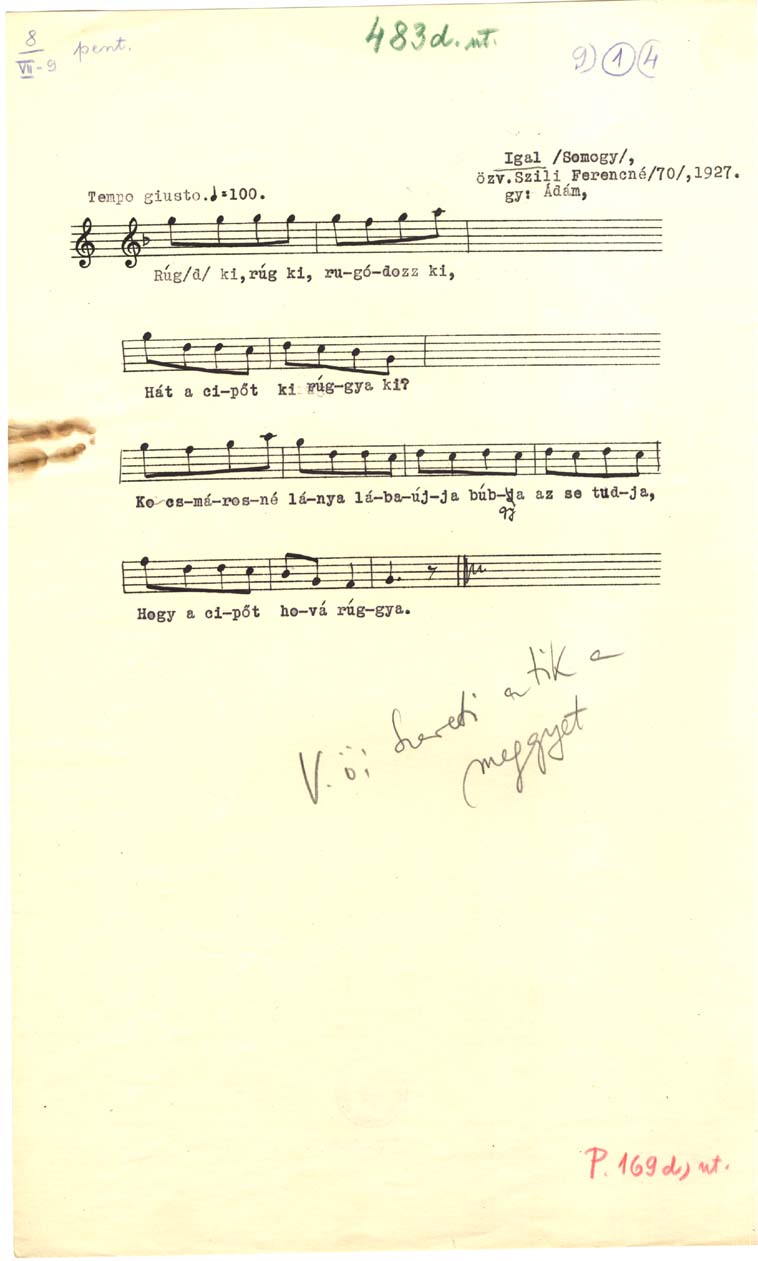 8
VII-9 pent.
483 d. nt.
9) 1 4
Igal /Somogy/,
özv.Szili Ferencné/70/,1927.
gy: Ádám,
Tempo giusto.♩=100.
Rúg/d/ ki,rúg ki, ru-gó-dozz ki,
Hát a ci-pőt ki rúg-gya ki?
Ko cs-má-ros-né lá-nya lá-ba-új-ja búb-ja az se tud-ja,
gy
Hogy a ci-pőt ho-vá rúg-gya.
V. ö: Szereti a tik a
meggyet
P. 169 d, nt.